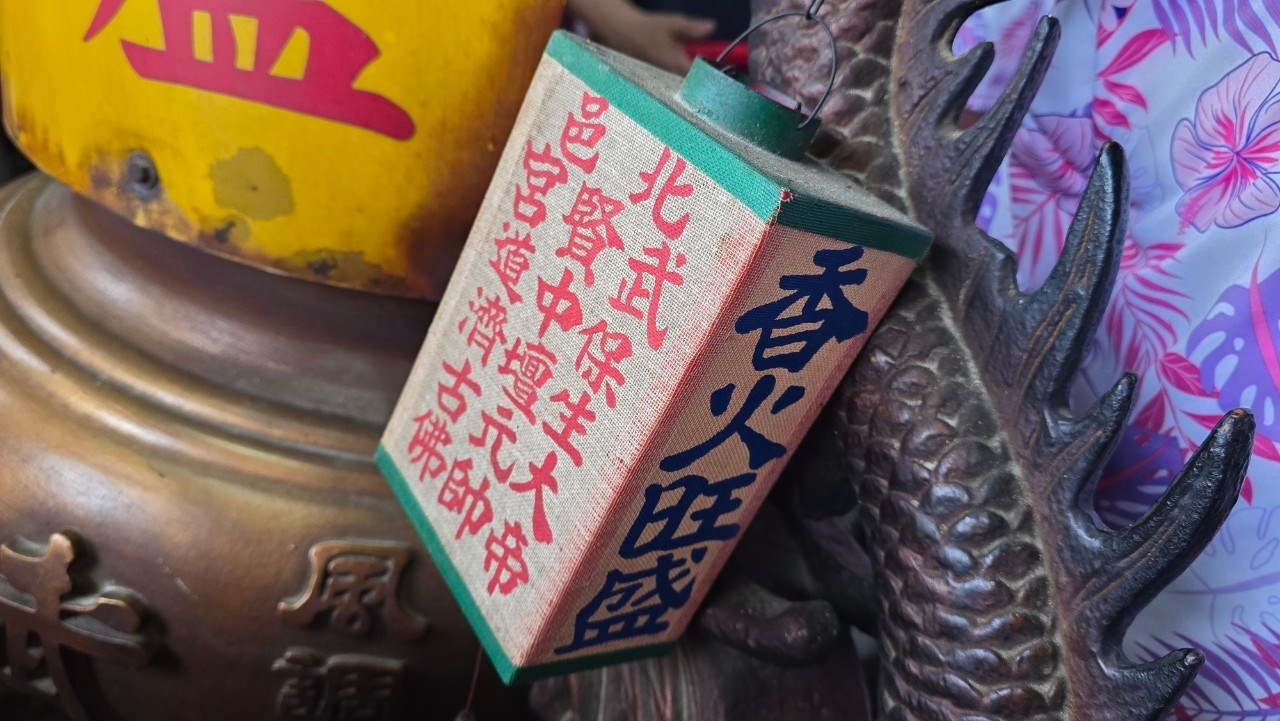 北武保生大帝
邑賢中壇元帥
宮道濟古佛
香火旺盛
風調